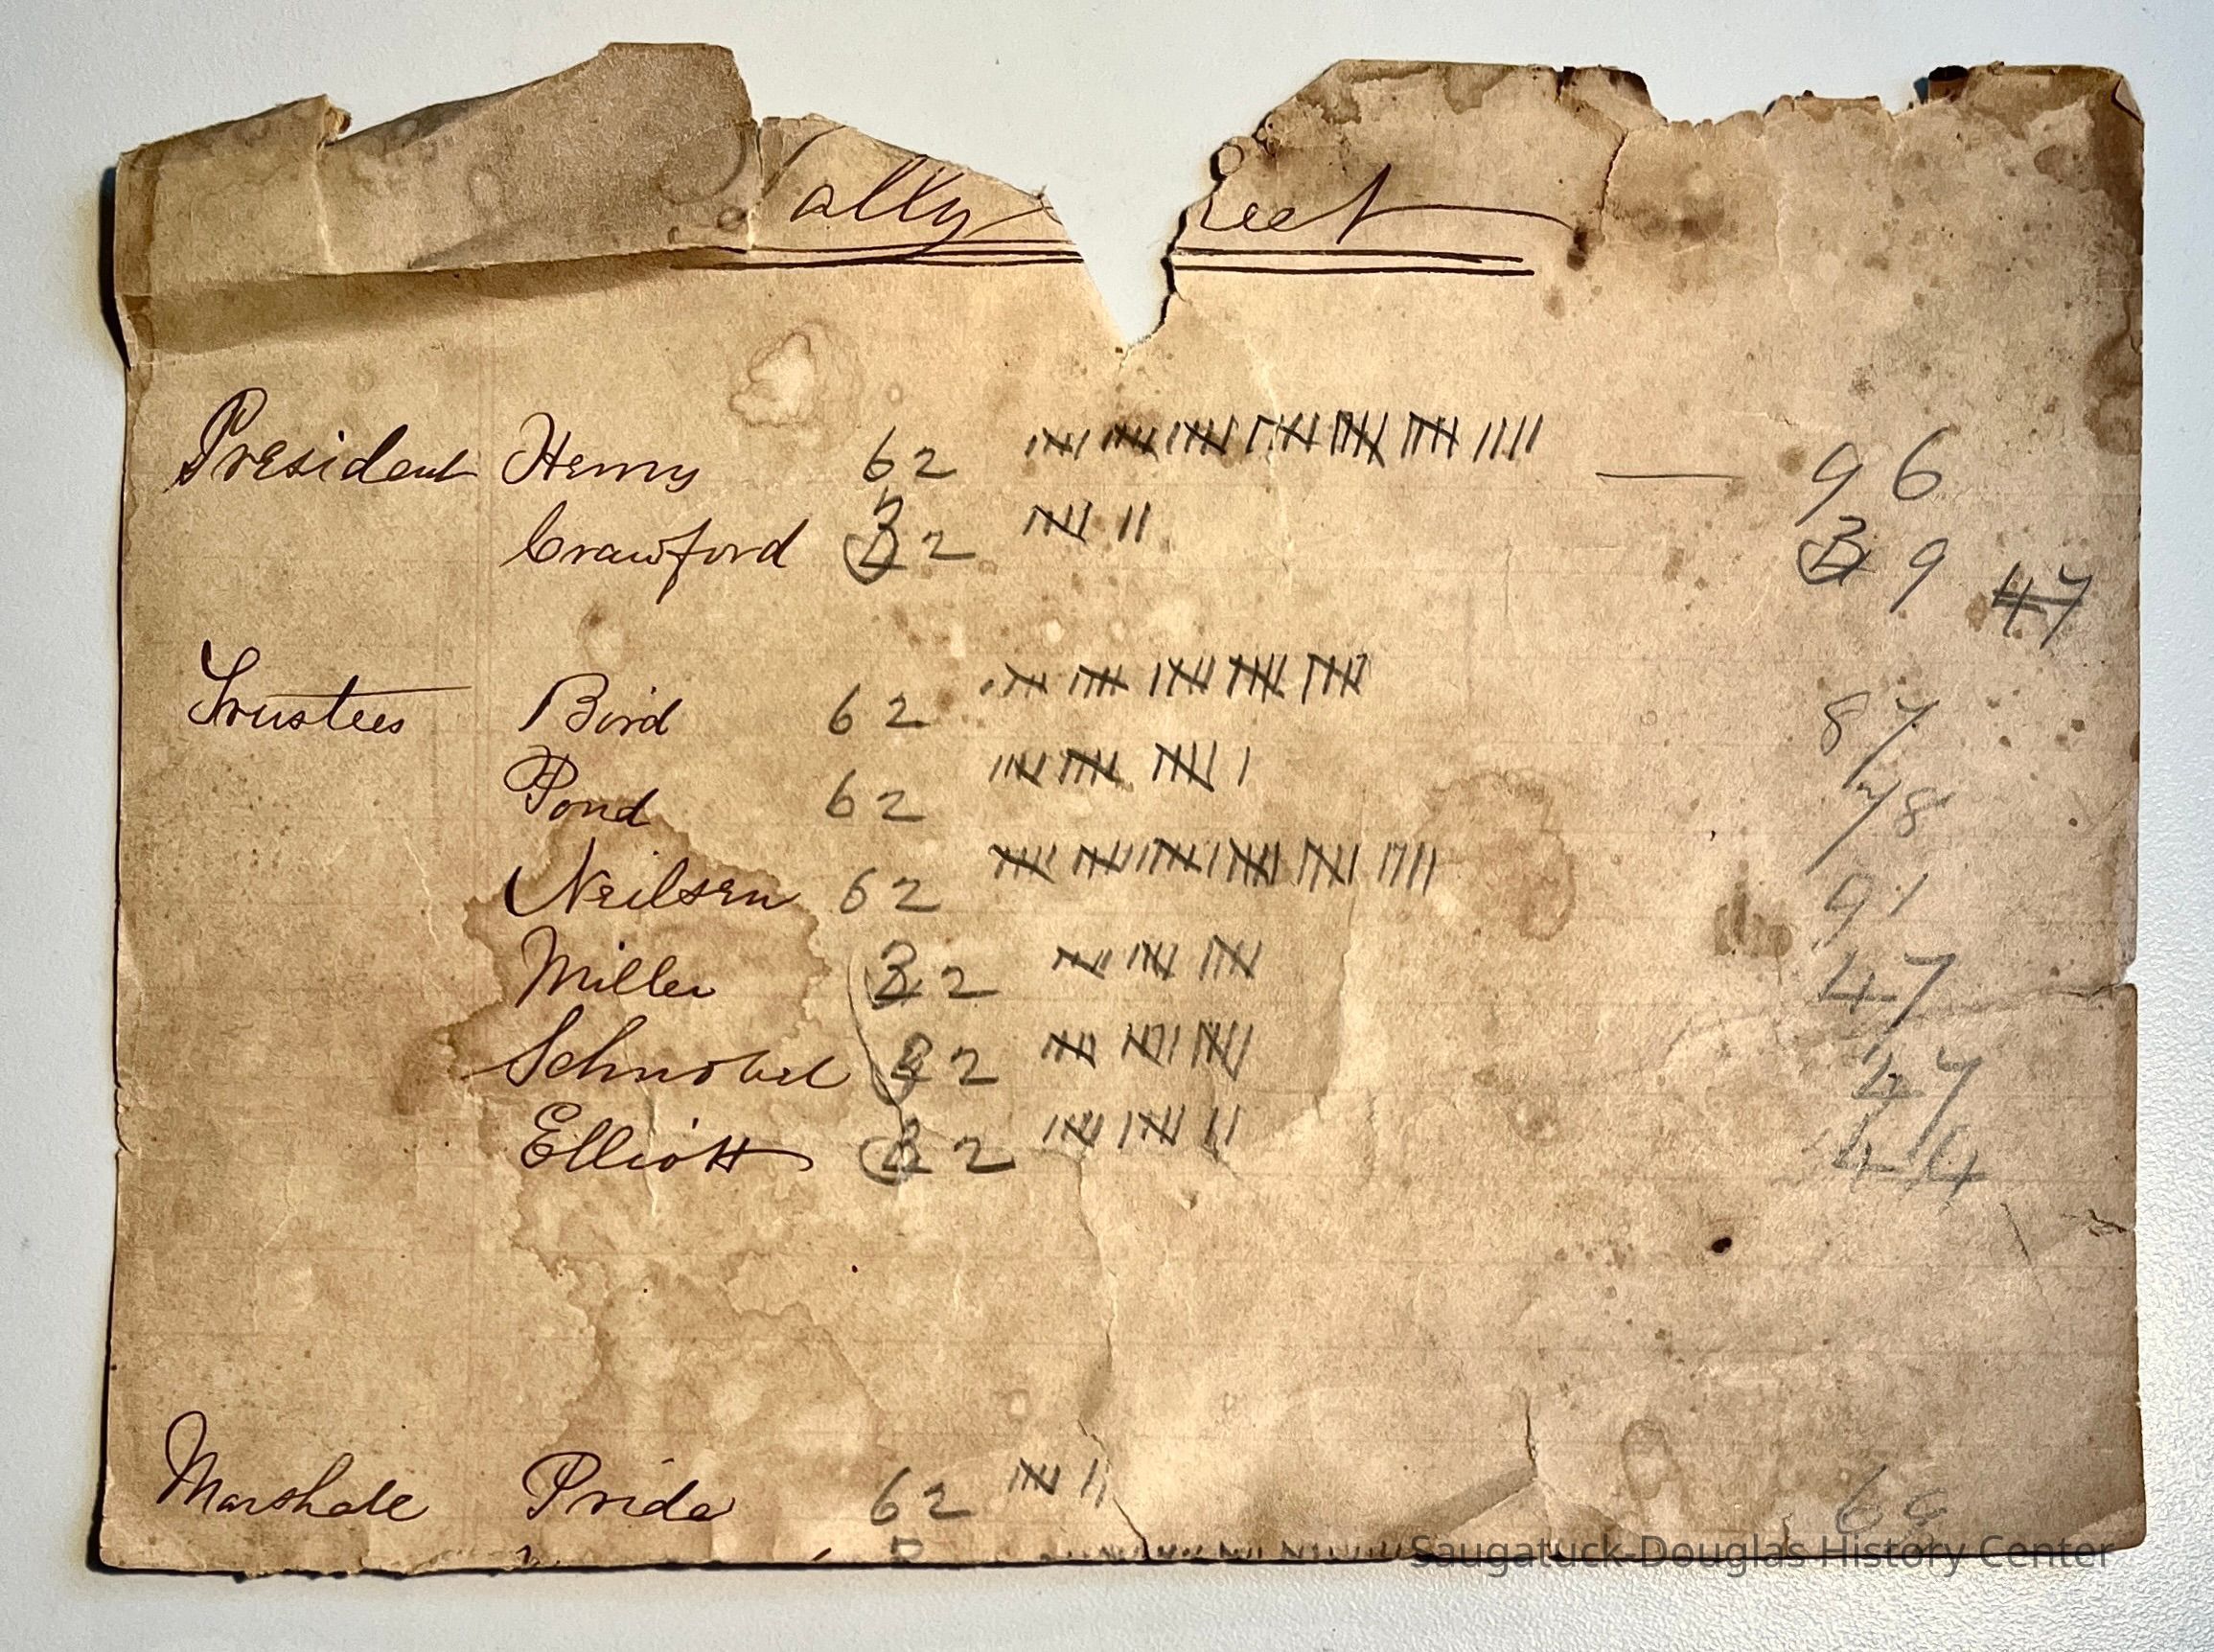 Tally Sheet
President Henry 62 𝍸 𝍸 𝍸 𝍸 𝍸 𝍸 |||| — 96
Crawford 32 𝍸 || 39 47
Trustees Bird 62 𝍸 𝍸 𝍸 𝍸 𝍸 87
Pond 62 𝍸 𝍸 𝍸 | 78
Neilsen 62 𝍸 𝍸 𝍸 𝍸 𝍸 |||| 91
Miller 32 𝍸 𝍸 𝍸 47
Schnobel 32 𝍸 𝍸 𝍸 47
Elliott 32 𝍸 𝍸 || 44
Marshall Pride 62 𝍸 || 69
Saugatuck-Douglas History Center